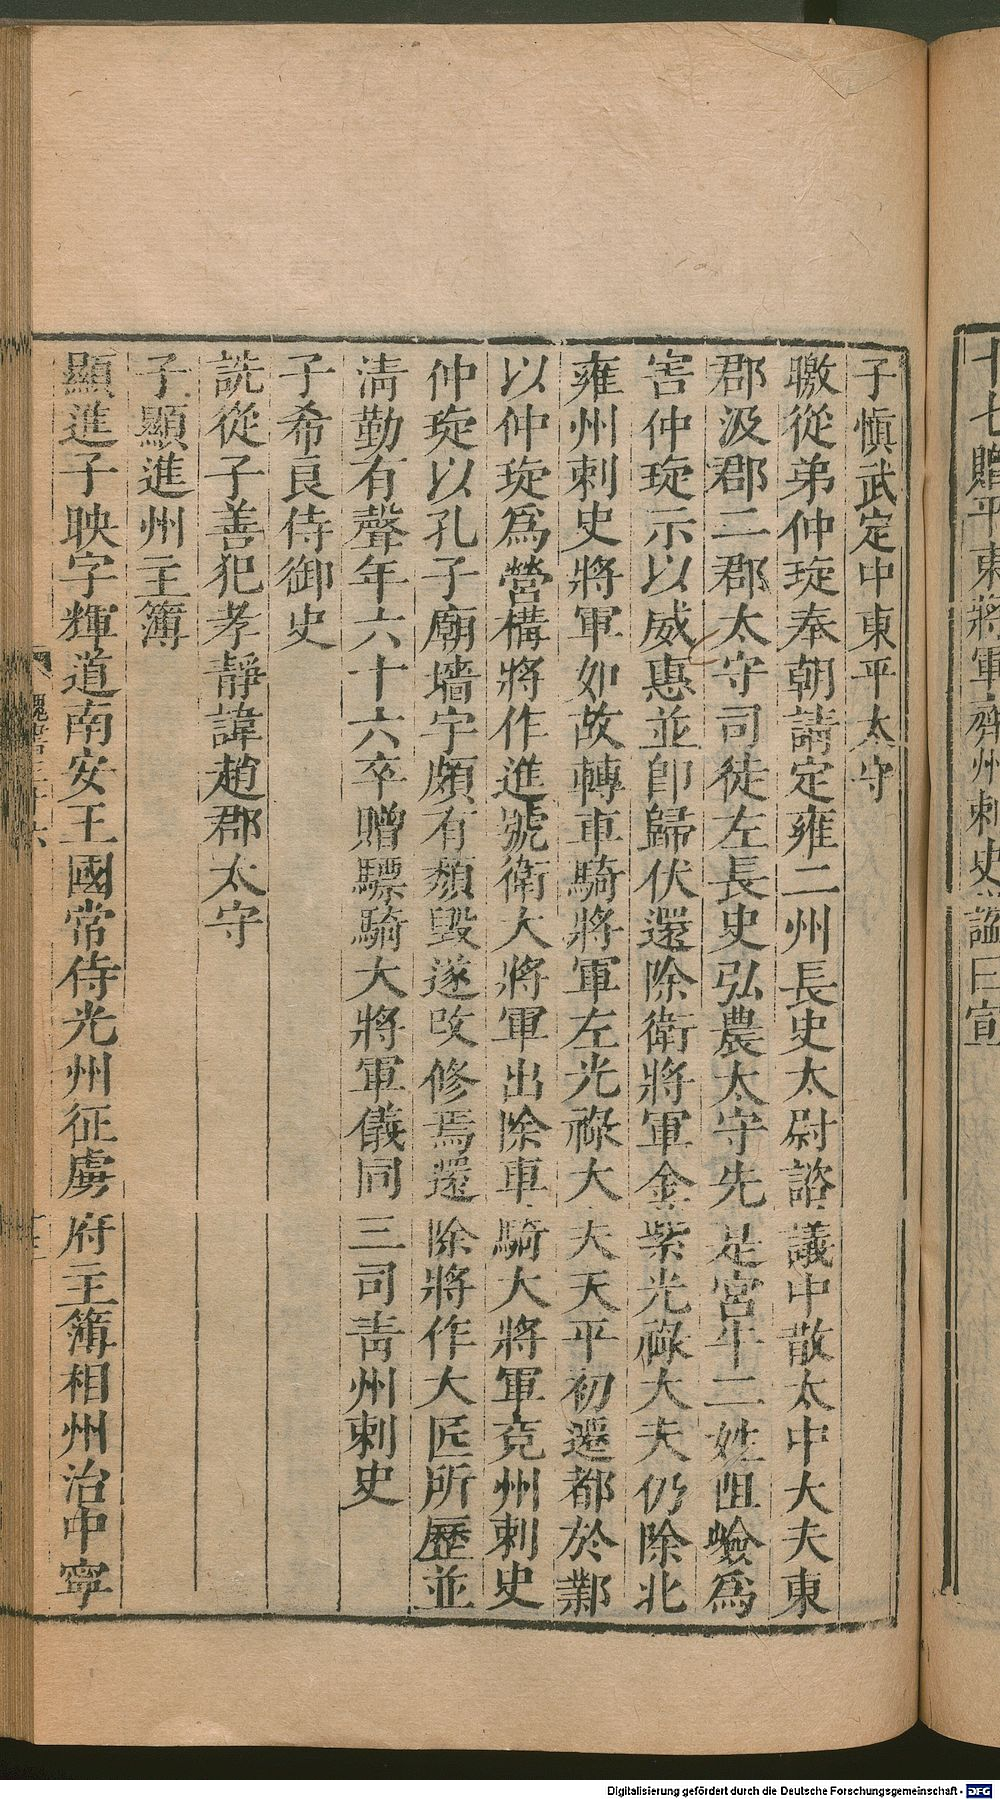 十七贈平東將軍齊州刺史謚曰宣
子愼武定中東平太守
曒從弟仲琁奉朝請定雍二州長史太尉諮議中散太中大夫東
郡汲郡二郡太守司徒左長史弘農太守先是宮牛二姓阻嶮爲
害仲琁示以威惠並卽歸伏還除衛將軍金紫光祿大夫仍除北
雍州刺史將軍如故轉車騎將軍左光祿大夫天平初遷都於鄴
以仲琁爲營構將作進號衛大將軍出除車騎大將軍兗州刺史
仲琁以孔子廟墻宇頗有頽毀遂改修焉還除將作大匠所歷並
淸勤有聲年六十六卒贈驃騎大將軍儀同三司靑州刺史
子希良侍御史
詵從子善犯孝靜諱趙郡太守
子顯進州主簿
顯進子映字輝道南安王國常侍光州征虜府主簿相州治中寧
魏書三十六
Digitalisierung gefördert durch die Deutsche Forschungsgemeinschaft - DFG